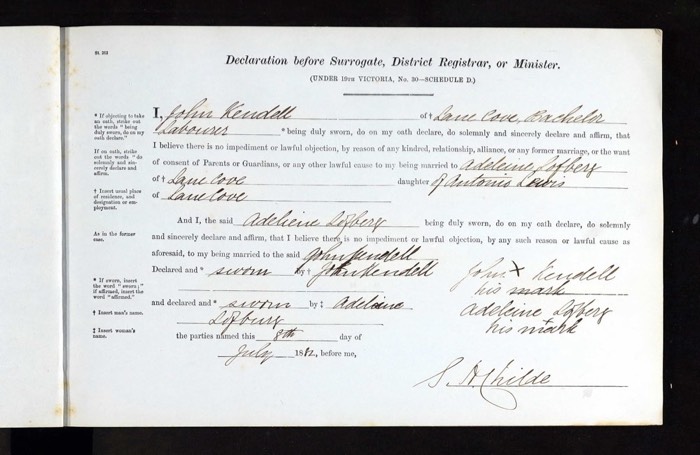 Declaration before Surrogate, District Registrar, or Minister.
(UNDER 19TH VICTORIA, No. 30—SCHEDULE D.)
* If objecting to take
an oath, strike out
the words "being
duly sworn, do on my
oath declare."
If on oath, strike
out the words "do
solemnly and sin-
cerely declare and
affirm.
† Insert usual place
of residence, and
designation or em-
ployment.
As in the former
case.
* If sworn, insert
the word "sworn;"
if affirmed, insert the
word "affirmed."
† Insert man's name.
‡ Insert woman's
name.
I, John Kendell of † Lane Cove, Bachelor
Labourer * being duly sworn, do on my oath declare, do solemnly and sincerely declare and affirm, that
I believe there is no impediment or lawful objection, by reason of any kindred, relationship, alliance, or any former marriage, or the want
of consent of Parents or Guardians, or any other lawful cause to my being married to Adeleine Lofberg
of † Lane Cove daughter of Antonio Lewis
of Lane Cove
And I, the said Adeliene Lofberg being duly sworn, do on my oath declare, do solemnly
and sincerely declare and affirm, that I believe there is no impediment or lawful objection, by any such reason or lawful cause as
aforesaid, to my being married to the said John Kendell
Declared and * sworn by † John Kendell
John X Kendell
his mark
and declared and * sworn by ‡ Adeleine
Lofburg
Adeleine Lofberg
his mark
the parties named this 8th day of
July 1882, before me,
S. H. Childe